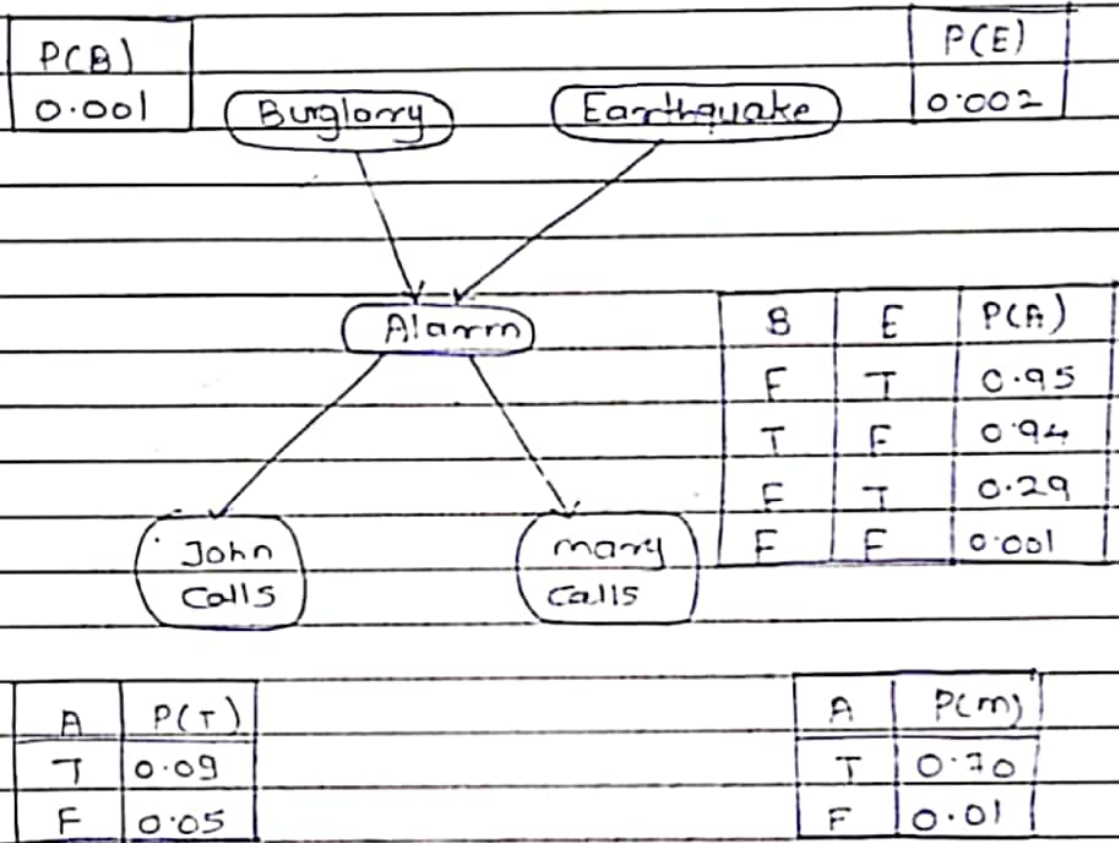 P(B)
0.001
Burglarry
Earthquake
P(E)
0.002
Alarm
B E P(A)
F T 0.95
T F 0.94
F T 0.29
F F 0.001
John
Calls
mary
calls
A P(T)
T 0.09
F 0.05
A P(m)
T 0.70
F 0.01